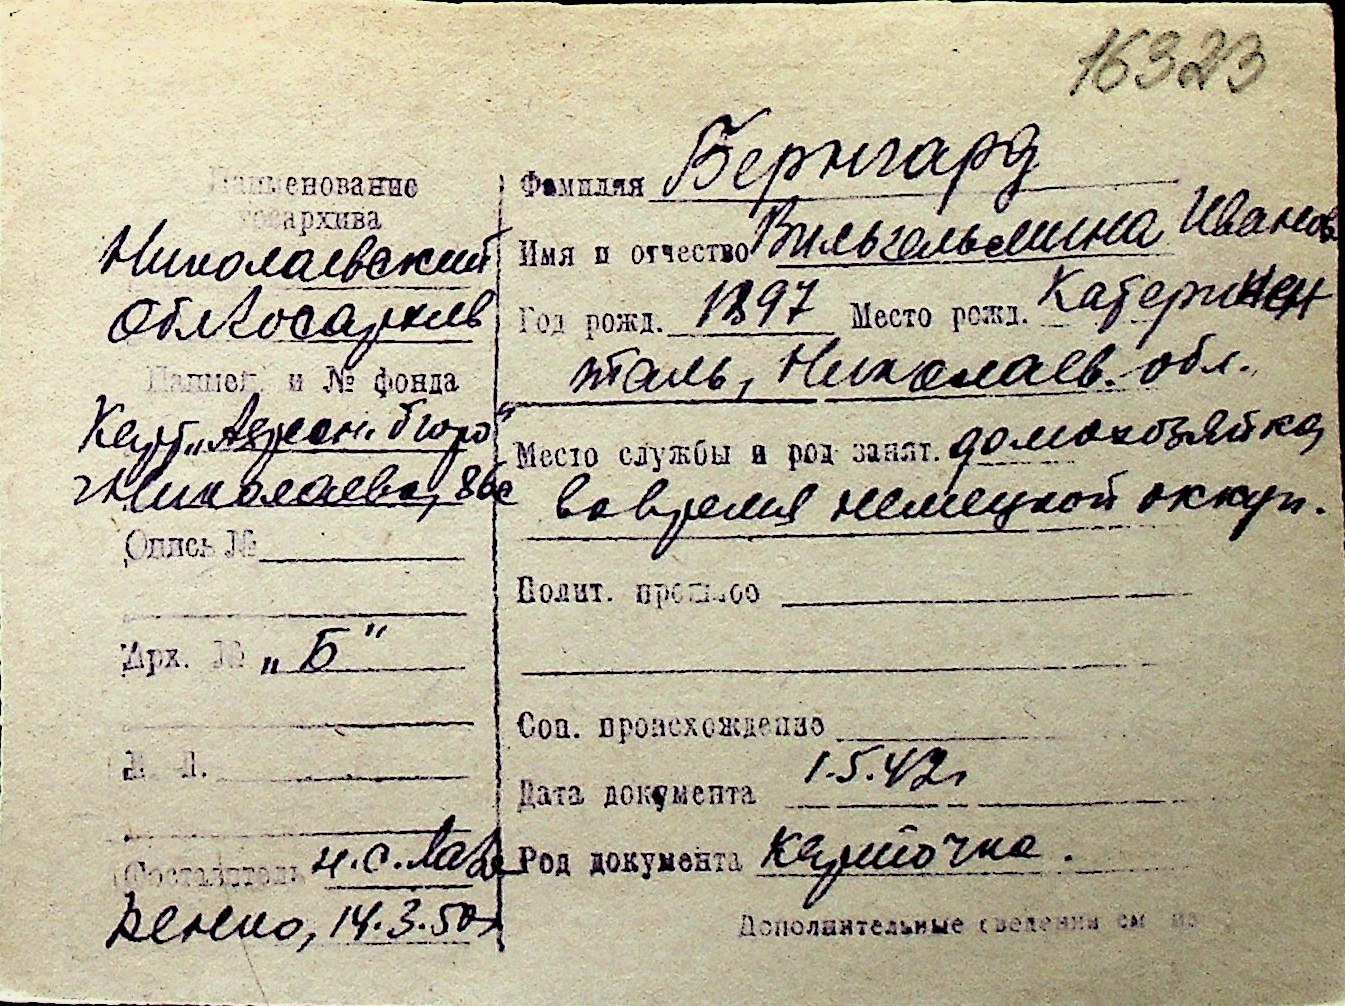 16323
Наименование
госархива
Николаевский
Облгосархив
Наимен. и № фонда
Карт. „Адресн. бюро"
г. Николаева, 86с
Опись №
Арх. № „Б"
Л. л.
Составитель н.с. Лав
ренко, 14.3.50г
Фамилия Бернгард
Имя и отчество Вильгельмина Иванов
Год рожд. 1897 Место рожд. Катеринен
таль, Николаев. обл.
Место службы и род занят. домохозяйка,
во время немецкой оккуп.
Полит. прошлое
Соц. происхождение
Дата документа 1.5.42г
Род документа карточка.
Дополнительные сведения см